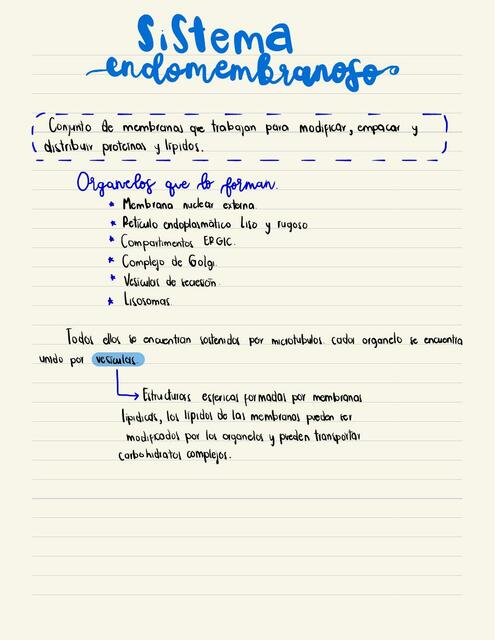 Sistema
endomembranoso
Conjunto de membranas que trabajan para modificar, empacar y
distribuir proteinas y lípidos.
Organelos que lo forman.
* Membrana nuclear externa.
* Retículo endoplasmático Liso y rugoso
* Compartimentos ERGIC.
* Complejo de Golgi.
* Vesículas de secresión.
* Lisosomas.
Todos ellos se encuentran sostenidos por microtubulos. cada organelo se encuentra
unido por vesículas.
Estructuras esfericas formadas por membranas
lipidicas, los lípidos de las membranas pueden ser
modificados por los organelos y pueden transportar
carbohidratos complejos.